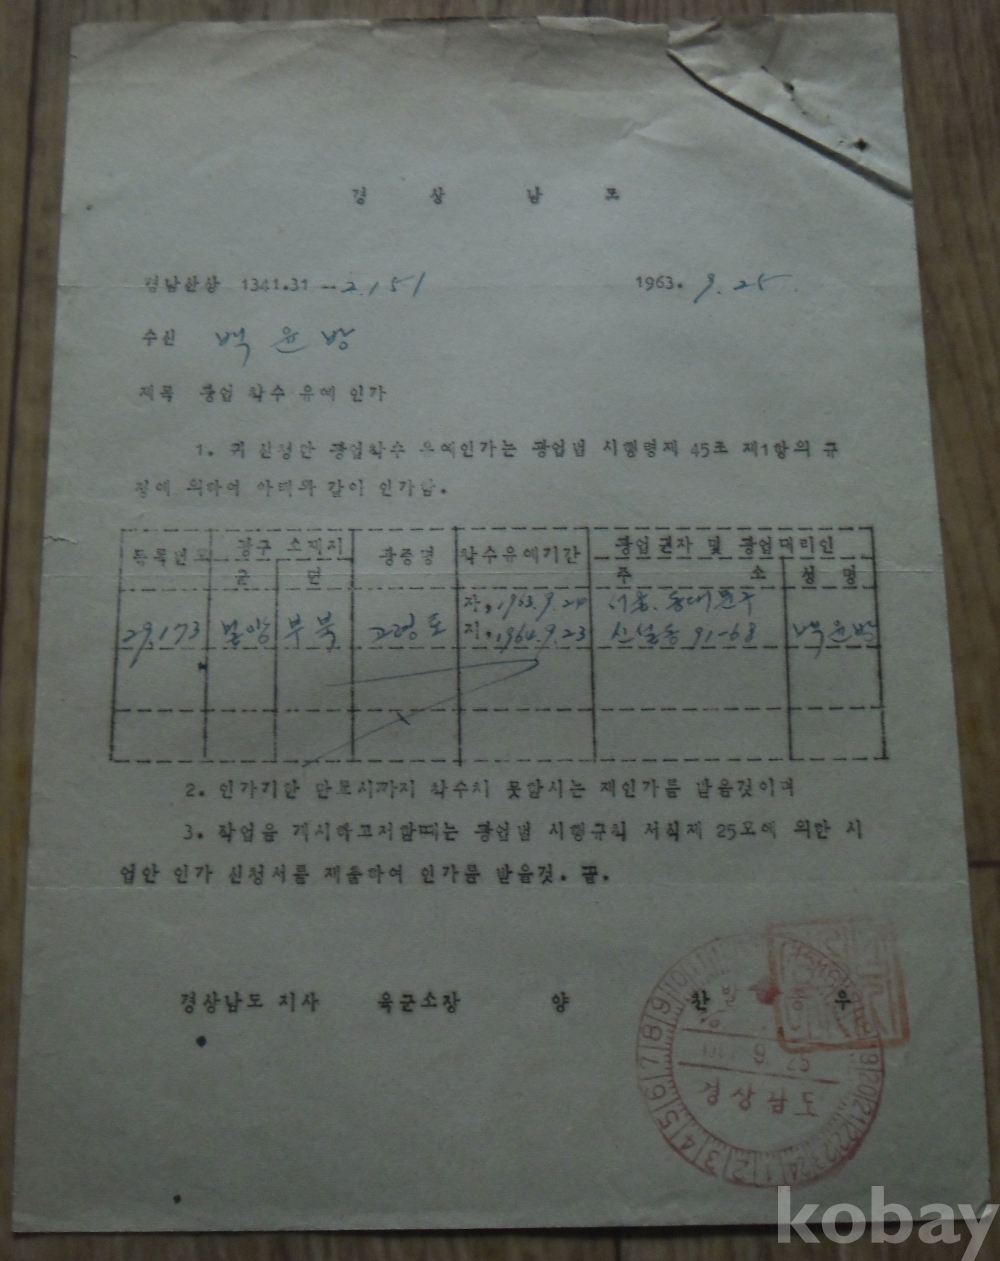 경 상 남 도
경남산상 1341.31 -- 2.151 1963. 9. 25.
수신 백윤방
제목 광업 착수 유예 인가
1. 귀 신청한 광업착수 유예인가는 광업법 시행령제 45조 제1항의 규
정에 의하여 아래와 같이 인가함.
등록번호 광구 소재지 광종명 착수유예기간 광업권자 및 광업대리인
군 면 주 소 성 명
자.1963.9.24 서울.동대문구
29,173 밀양 부북 고령토 지.1964.9.23 신설동 91-68 백윤방
2. 인가기한 만료시까지 착수치 못할시는 재인가를 받을것이며
3. 작업을 개시하고저할때는 광업법 시행규칙 서식제 25호에 의한 시
업안 인가 신청서를 제출하여 인가를 받을것. 끝.
경상남도 지사 육군소장 양 찬 우
9 25
경상남도
kobay